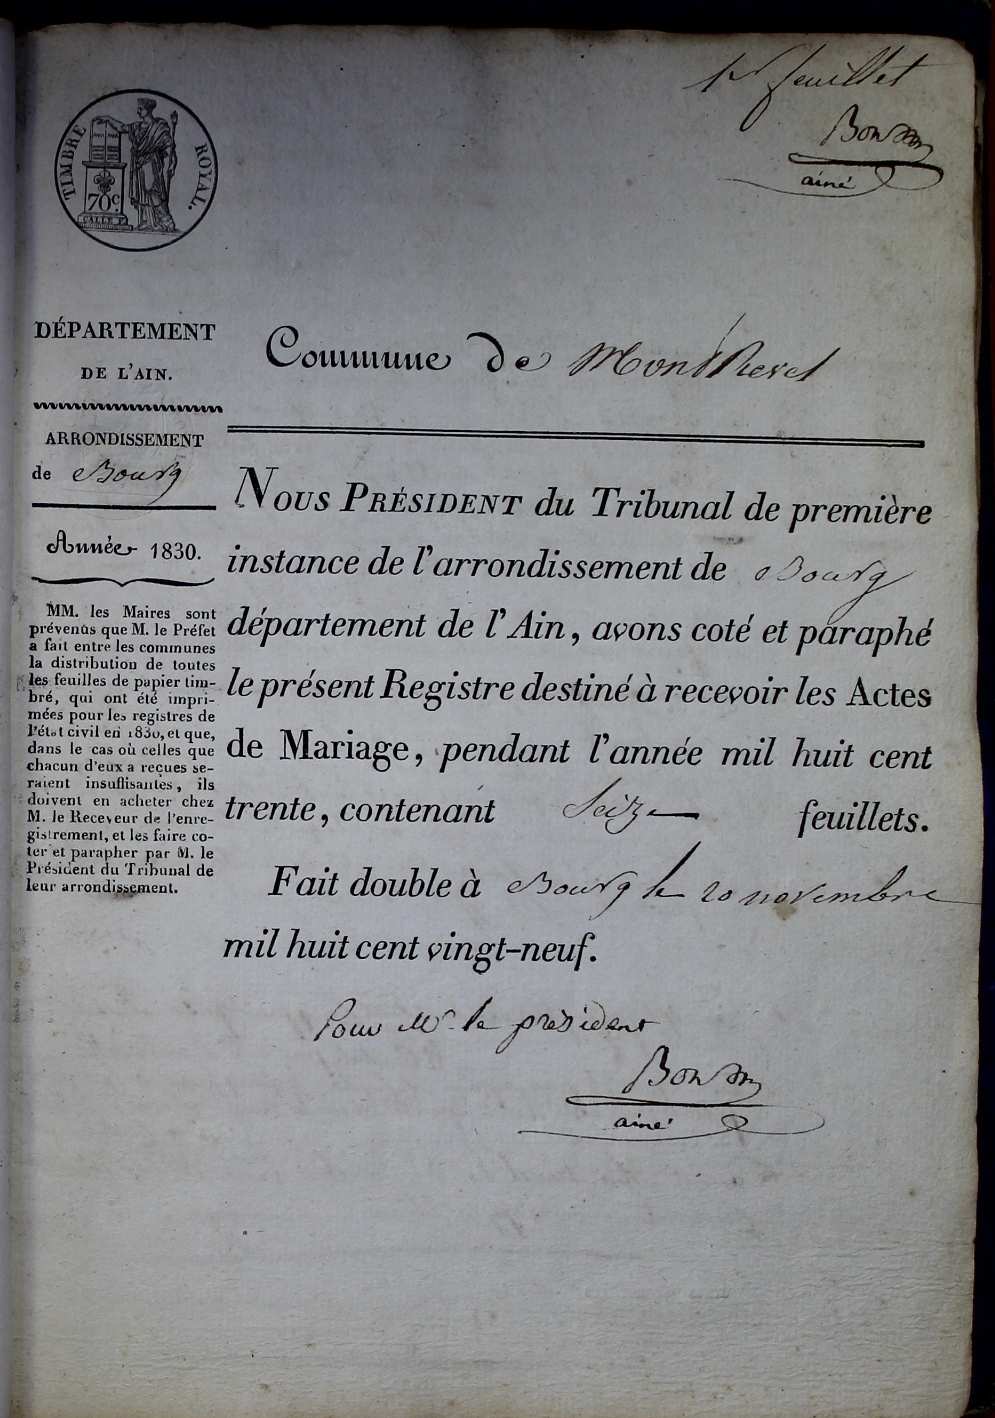 1er feuillet
Bon
ainé
TIMBRE ROYAL.
70c.
DÉPARTEMENT
DE L'AIN.
ARRONDISSEMENT
de Bourg
Année 1830.
MM. les Maires sont
prévenus que M. le Préfet
a fait entre les communes
la distribution de toutes
les feuilles de papier tim-
bré, qui ont été impri-
mées pour les registres de
l'état civil en 1830, et que,
dans le cas où celles que
chacun d'eux a reçues se-
raient insuffisantes, ils
doivent en acheter chez
M. le Receveur de l'enre-
gistrement, et les faire co-
ter et parapher par M. le
Président du Tribunal de
leur arrondissement.
Commune de MontRevel
NOUS PRÉSIDENT du Tribunal de première
instance de l'arrondissement de Bourg
département de l'Ain, avons coté et paraphé
le présent Registre destiné à recevoir les Actes
de Mariage, pendant l'année mil huit cent
trente, contenant Seize feuillets.
Fait double à Bourg le 20 novembre
mil huit cent vingt-neuf.
Pour Mr le président
Bon
ainé